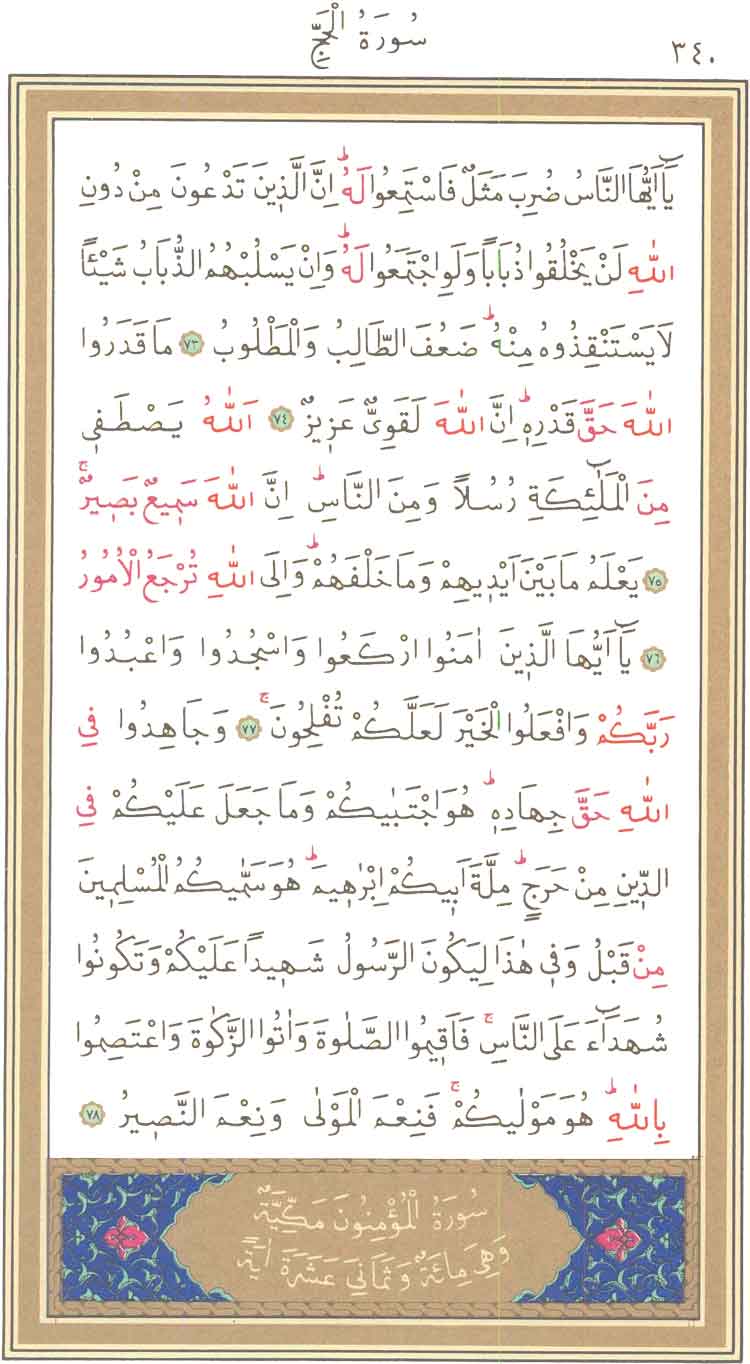 سُورَةُ الْحَجِّ
٣٤٠
يَٓا اَيُّهَا النَّاسُ ضُرِبَ مَثَلٌ فَاسْتَمِعُوا لَهُۜ اِنَّ الَّذ۪ينَ تَدْعُونَ مِنْ دُونِ
اللّٰهِ لَنْ يَخْلُقُوا ذُبَاباً وَلَوِ اجْتَمَعُوا لَهُۜ وَاِنْ يَسْلُبْهُمُ الذُّبَابُ شَيْـٔاً
لَا يَسْتَنْقِذُوهُ مِنْهُۜ ضَعُفَ الطَّالِبُ وَالْمَطْلُوبُ ﴿٧٣﴾ مَا قَدَرُوا
اللّٰهَ حَقَّ قَدْرِه۪ۜ اِنَّ اللّٰهَ لَقَوِيٌّ عَز۪يزٌ ﴿٧٤﴾ اَللّٰهُ يَصْطَف۪ي
مِنَ الْمَلٰٓئِكَةِ رُسُلاً وَمِنَ النَّاسِۜ اِنَّ اللّٰهَ سَم۪يعٌ بَص۪يرٌۚ
﴿٧٥﴾ يَعْلَمُ مَا بَيْنَ اَيْد۪يهِمْ وَمَا خَلْفَهُمْۜ وَاِلَى اللّٰهِ تُرْجَعُ الْاُمُورُ
﴿٧٦﴾ يَٓا اَيُّهَا الَّذ۪ينَ اٰمَنُوا ارْكَعُوا وَاسْجُدُوا وَاعْبُدُوا
رَبَّكُمْ وَافْعَلُوا الْخَيْرَ لَعَلَّكُمْ تُفْلِحُونَۚ ﴿٧٧﴾ وَجَاهِدُوا فِي
اللّٰهِ حَقَّ جِهَادِه۪ۜ هُوَ اجْتَبٰيكُمْ وَمَا جَعَلَ عَلَيْكُمْ فِي
الدّ۪ينِ مِنْ حَرَجٍۜ مِلَّةَ اَب۪يكُمْ اِبْرٰه۪يمَۜ هُوَ سَمّٰيكُمُ الْمُسْلِم۪ينَ
مِنْ قَبْلُ وَف۪ي هٰذَا لِيَكُونَ الرَّسُولُ شَه۪يداً عَلَيْكُمْ وَتَكُونُوا
شُهَدَٓاءَ عَلَى النَّاسِۚ فَاَق۪يمُوا الصَّلٰوةَ وَاٰتُوا الزَّكٰوةَ وَاعْتَصِمُوا
بِاللّٰهِۜ هُوَ مَوْلٰيكُمْۚ فَنِعْمَ الْمَوْلٰى وَنِعْمَ النَّص۪يرُ ﴿٧٨﴾
سُورَةُ الْمُؤْمِنُونَ مَكِّيَّةٌ
وَهِيَ مِائَةٌ وَثَمَانِيَ عَشَرَةَ اٰيَةً